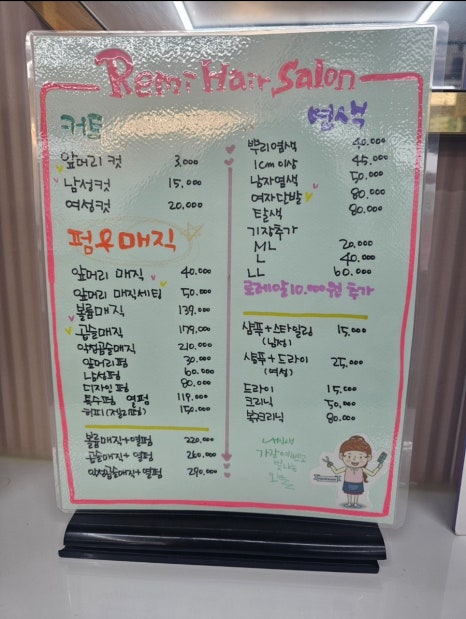 Remi Hair Salon
커트
앞머리 컷 3.000
남성컷 15.000
여성컷 20.000
펌&매직
앞머리 매직 40.000
앞머리 매직세팅 50.000
볼륨매직 139.000
곱슬매직 179.000
악성곱슬매직 210.000
앞머리펌 30.000
남성펌 60.000
디자인펌 80.000
특수펌 열펌 119.000
히피(젤리펌) 150.000
볼륨매직+열펌 220.000
곱슬매직+열펌 260.000
악성곱슬매직+열펌 290.000
염색
뿌리염색 40.000
1cm 이상 45.000
남자염색 50.000
여자단발 80.000
탈색 80.000
기장추가
ML 20.000
L 40.000
LL 60.000
로레알 10.000원 추가
샴푸+스타일링 15.000
(남성)
샴푸+드라이 25.000
(여성)
드라이 15.000
크리닉 50.000
복구크리닉 80.000
내인생
가장 예쁘고
빛나는
오늘